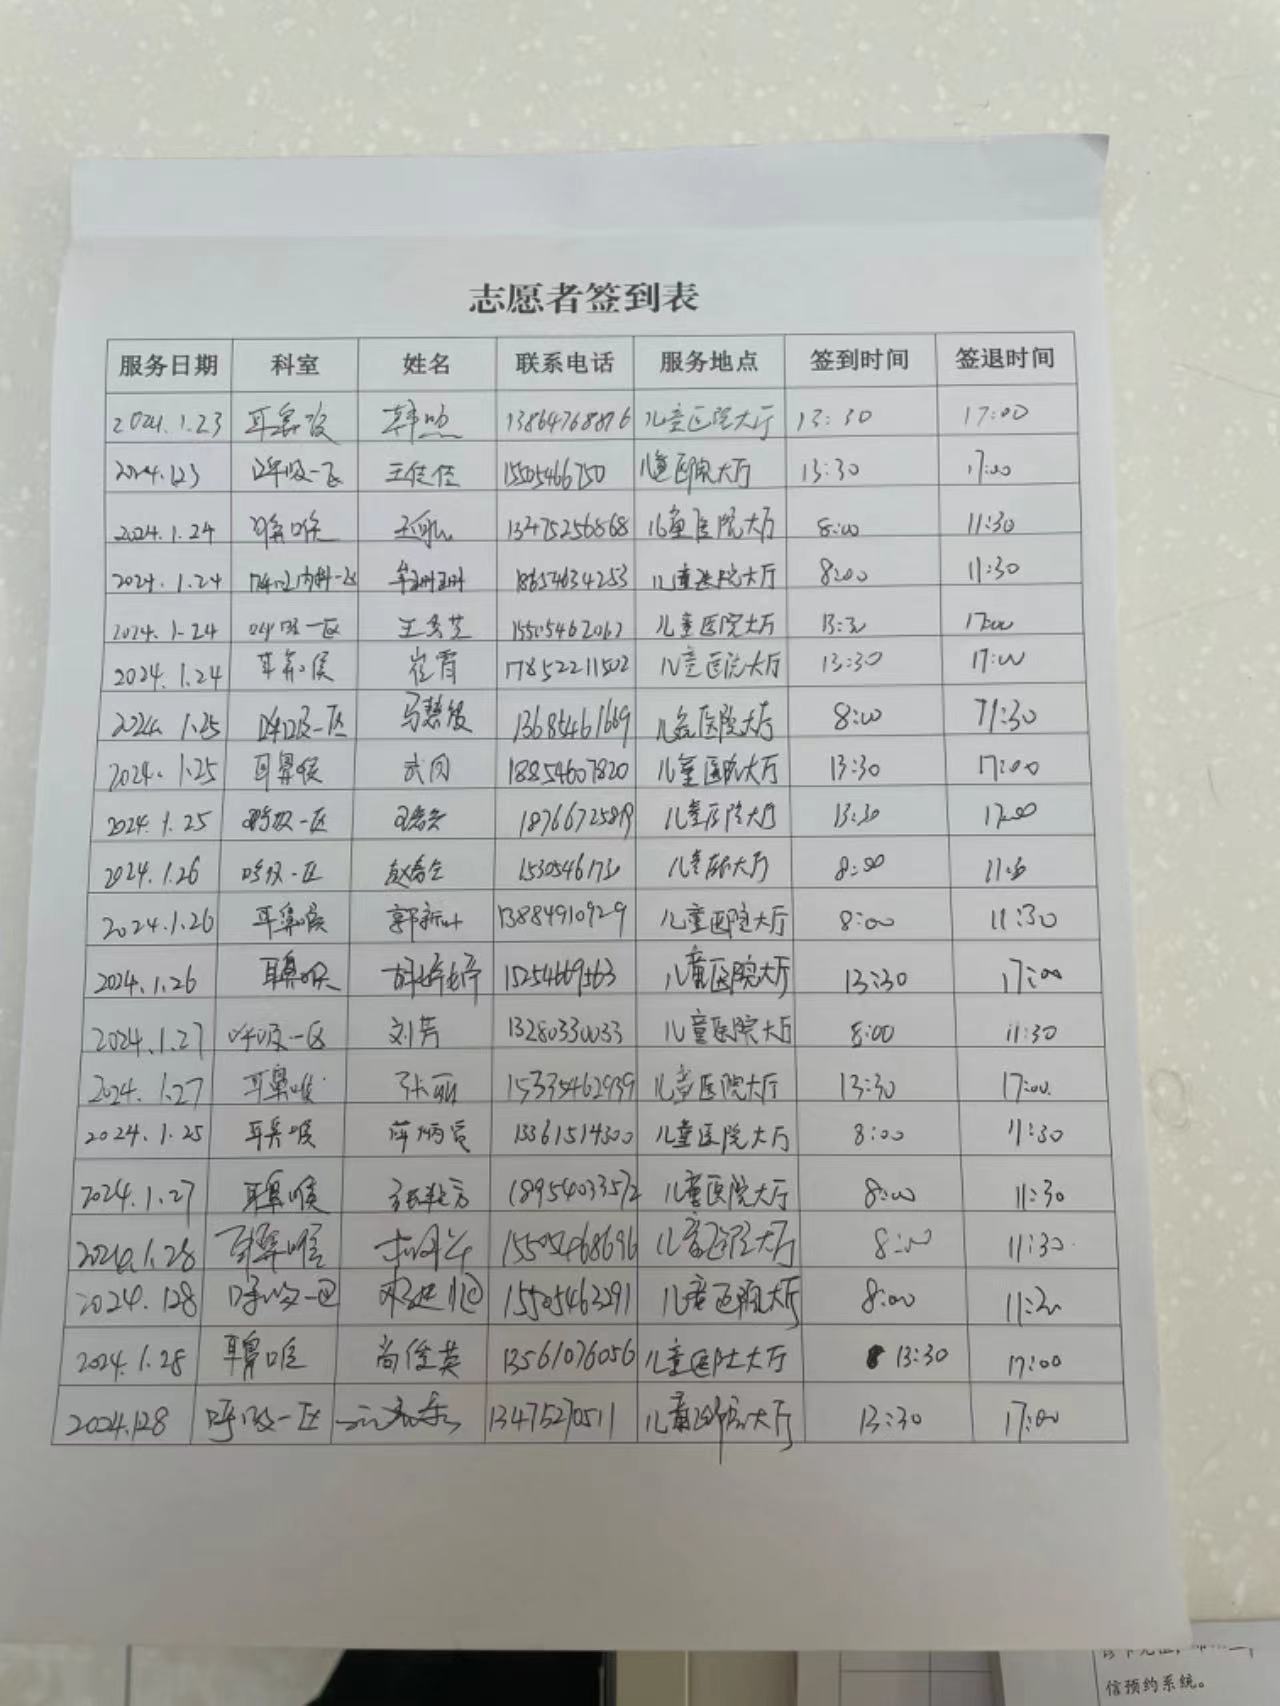 志愿者签到表
服务日期 科室 姓名 联系电话 服务地点 签到时间 签退时间
2024.1.23 耳鼻喉 13864768876 儿童医院大厅 13:30 17:00
2024.1.23 呼吸一区 王佳佳 15505466750 儿童医院大厅 13:30 17:00
2024.1.24 耳鼻喉 13475256868 儿童医院大厅 8:00 11:30
2024.1.24 呼吸内科一区 牟珊珊 18654634253 儿童医院大厅 8:00 11:30
2024.1.24 呼吸一区 王秀芝 15505462062 儿童医院大厅 13:30 17:00
2024.1.24 耳鼻喉 崔霄 17852211502 儿童医院大厅 13:30 17:00
2024.1.25 呼吸一区 马慧俊 13685461669 儿童医院大厅 8:00 11:30
2024.1.25 耳鼻喉 武同 18854607820 儿童医院大厅 13:30 17:00
2024.1.25 呼吸一区 儿童医院大厅 13:30 17:00
2024.1.26 呼吸一区 儿童医院大厅 8:30
2024.1.26 耳鼻喉 郭新叶 13884910929 儿童医院大厅 8:00 11:30
2024.1.26 耳鼻喉 胡婷婷 15254669563 儿童医院大厅 13:30 17:00
2024.1.27 呼吸一区 刘芳 13280330033 儿童医院大厅 8:00 11:30
2024.1.27 耳鼻喉 张丽 15335462939 儿童医院大厅 13:30 17:00
2024.1.25 耳鼻喉 13361514300 儿童医院大厅 8:00 11:30
2024.1.27 耳鼻喉 18954033572 儿童医院大厅 8:00 11:30
2024.1.28 耳鼻喉 15505468696 儿童医院大厅 8:00 11:30
2024.1.28 呼吸一区 15505463291 儿童医院大厅 8:00 11:30
2024.1.28 耳鼻喉 尚俊英 13561076056 儿童医院大厅 13:30 17:00
2024.1.28 呼吸一区 13475270511 儿童医院大厅 13:30 17:00
信预约系统。